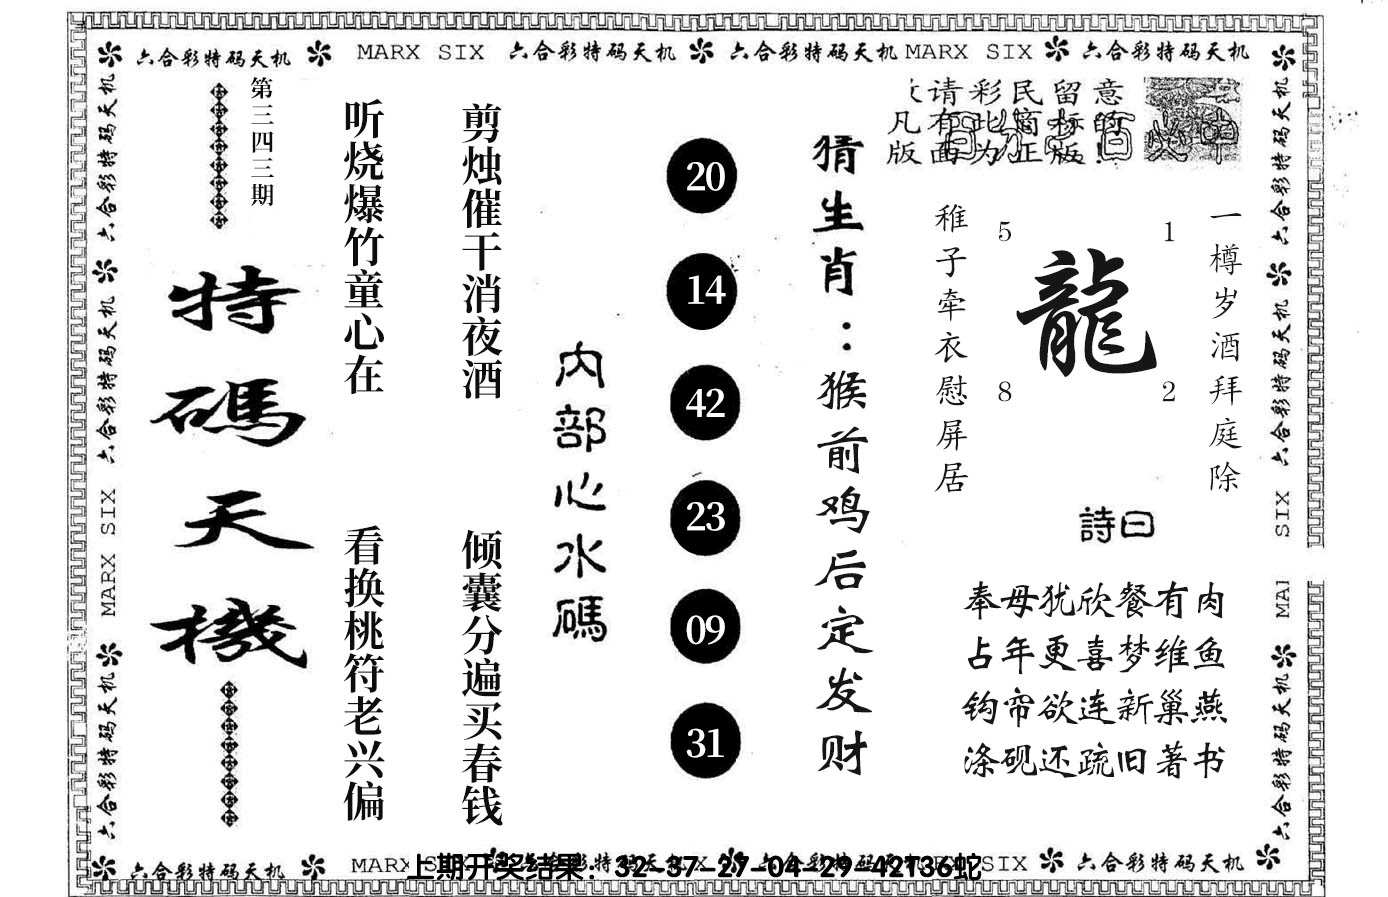 六合彩特码天机 MARX SIX 六合彩特码天机 六合彩特码天机 MARX SIX 六合彩特码天机
六合彩特码天机 六合彩特码天机 MARX SIX 六合彩特码天机
第三四三期
特碼天機
听烧爆竹童心在
看换桃符老兴偏
剪烛催干消夜酒
倾囊分遍买春钱
内部心水碼
20
14
42
23
09
31
猜生肖：猴前鸡后定发财
请彩民留意
凡有此窗标的
版面为正版!
稚子牵衣慰屏居
5 1
龍
8 2
一樽岁酒拜庭除
詩曰
奉母犹欣餐有肉
占年更喜梦维鱼
钩帘欲连新巢燕
涤砚还疏旧著书
六合彩特码天机 六合彩特码天机 SIX MAI 六合彩特码天机
六合彩特码天机 MARX SIX 六合彩特码天机 SIX 六合彩特码天机
上期开奖结果：32-37-27-04-29-42T36蛇